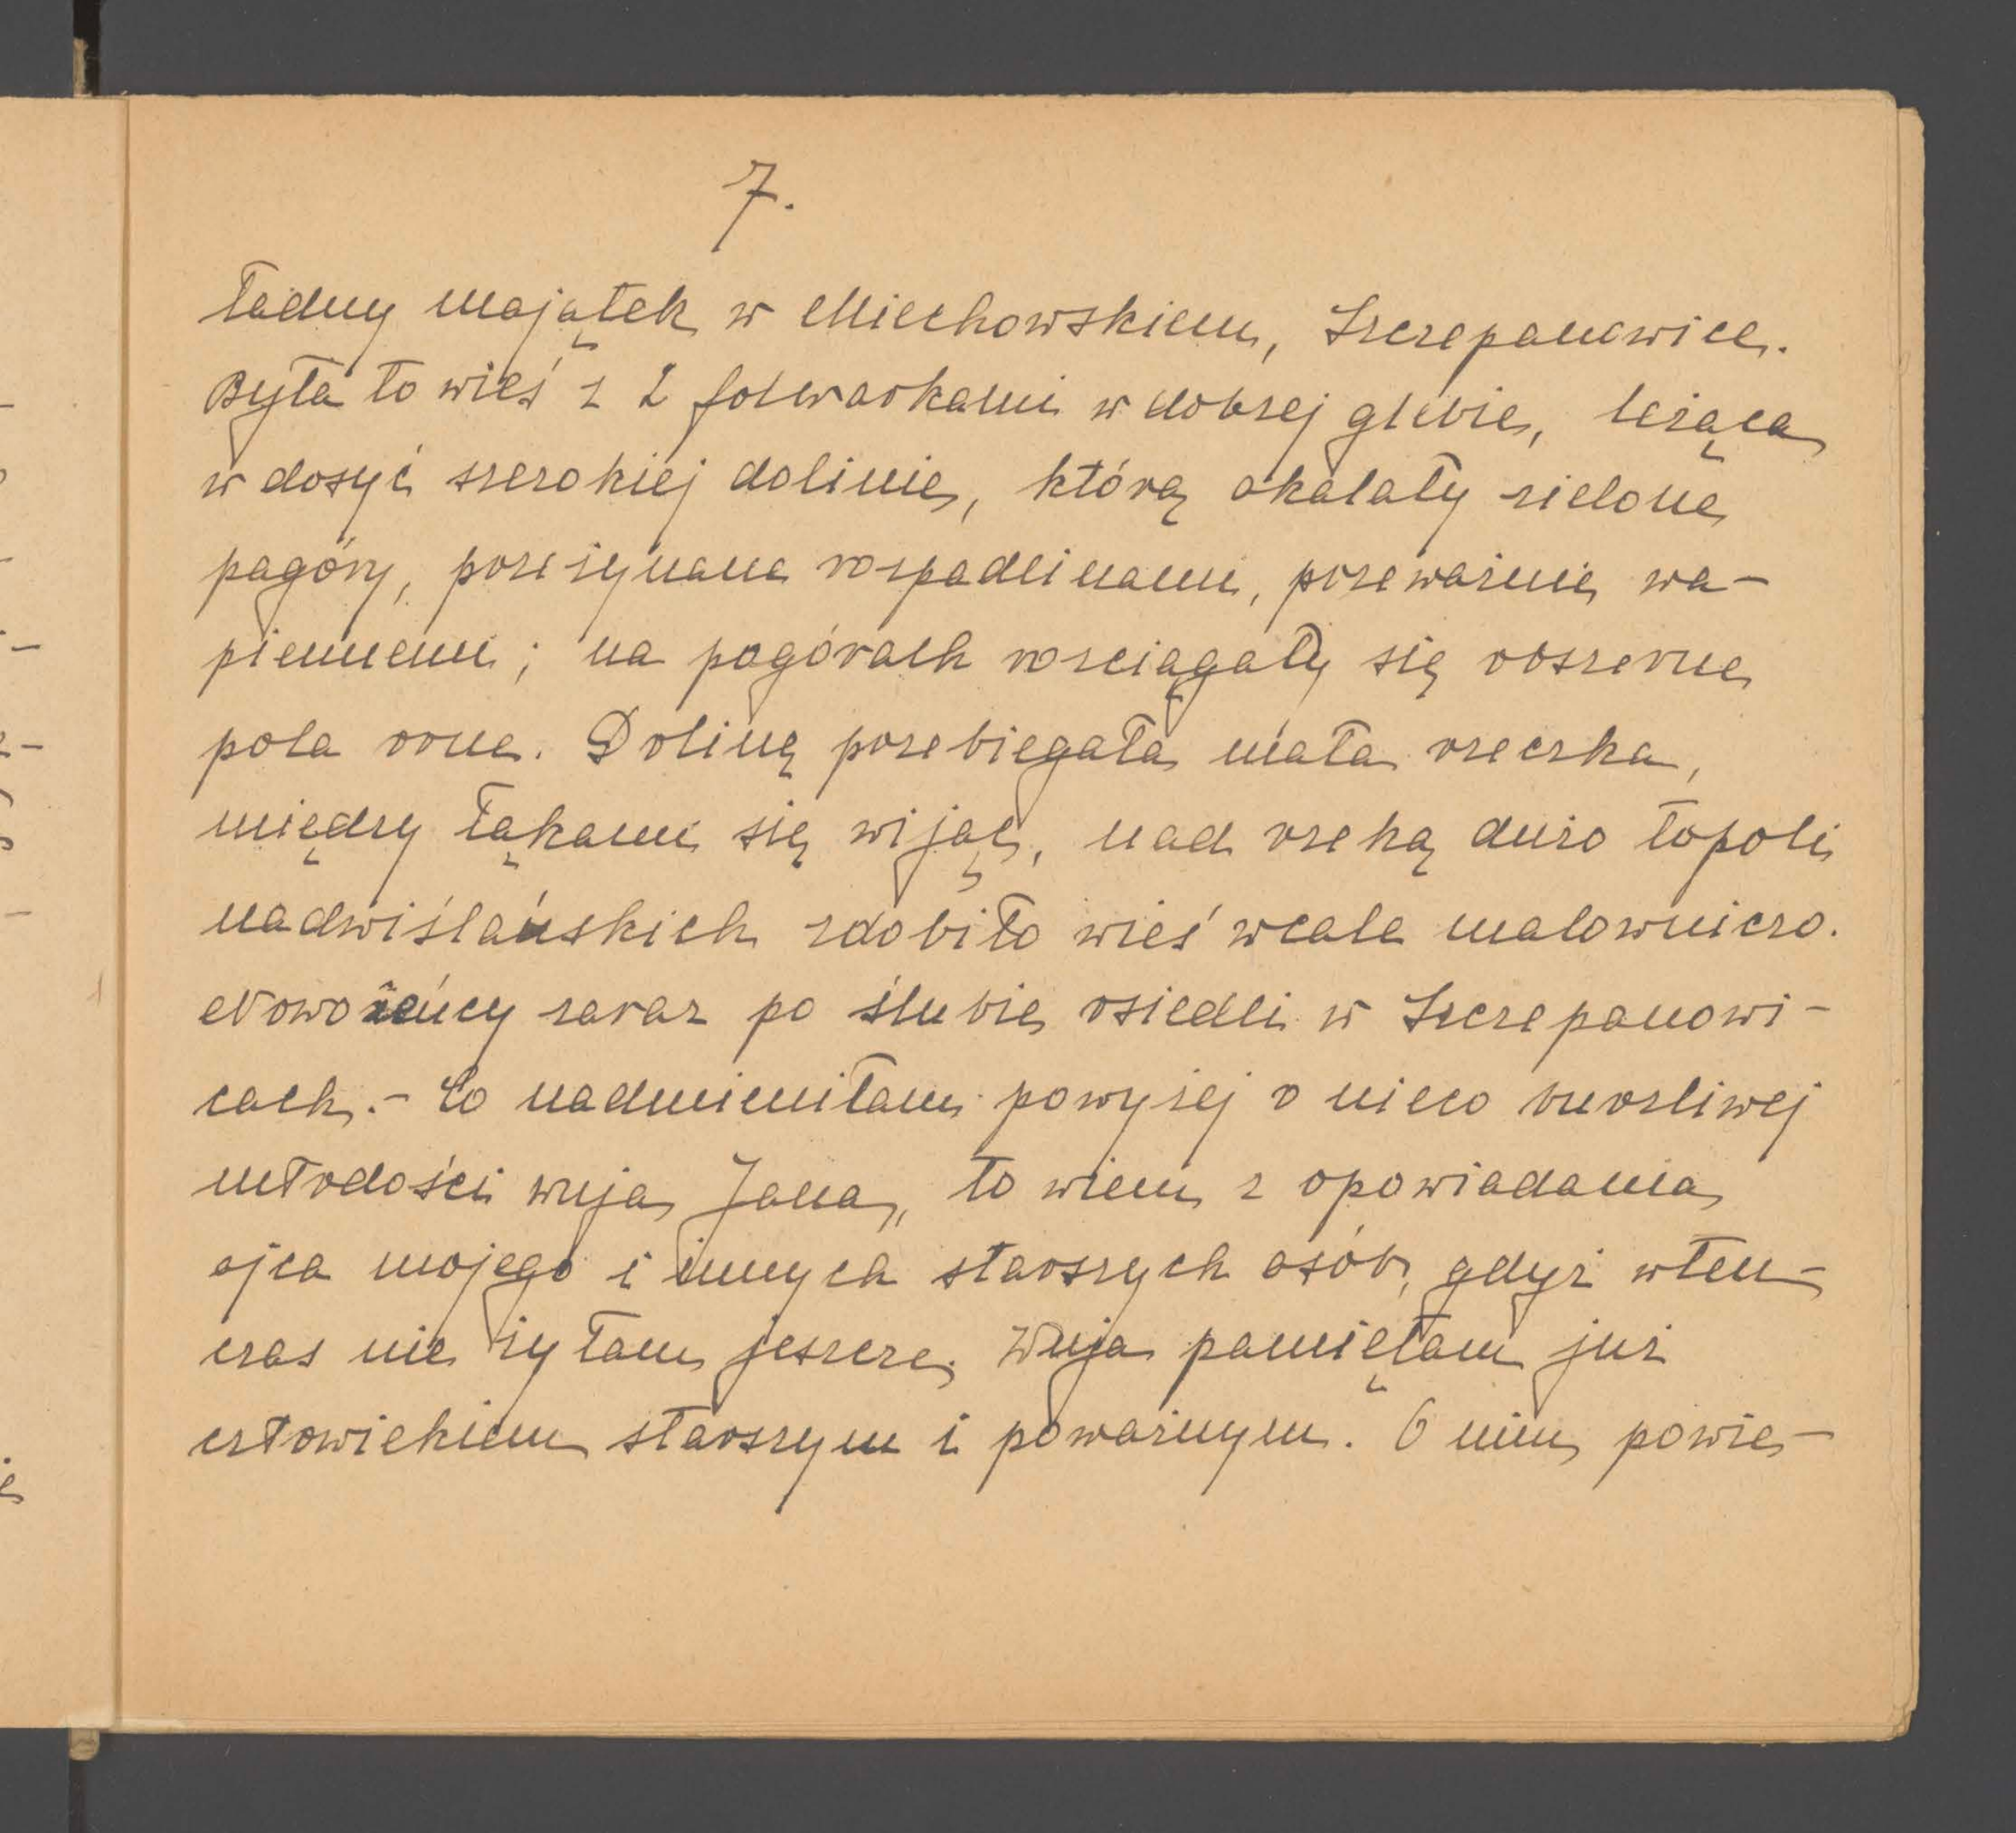 7.
ładny majątek w Miechowskiem, Szczepanowice.
Była to wieś z 2 folwarkami w dobrej glebie, leżąca
w dosyć szerokiej dolinie, którą okalały zielone
pagóry, porzezynane rozpadlinami, przeważnie wa-
piennemi; na pagórach rozciągały się obszerne
pola orne. Doliną przebiegała mała rzeczka,
między łąkami się wijąc, nad rzeką dużo topoli
nadwiślańskich zdobiło wieś wcale malowniczo.
Nowożeńcy zaraz po ślubie osiedli w Szczepanowi-
cach.- Co nadmieniłam powyżej o nieco burzliwej
młodości wuja Jana, to wiem z opowiadania
ojca mojego i innych starszych osób, gdyż wten-
czas nie żyłam jeszcze. Wuja pamiętam już
człowiekiem starszym i poważnym. O nim powie-